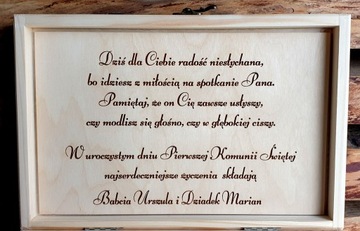 Dziś dla Ciebie radość niesłychana,
bo idziesz z miłością na spotkanie Pana.
Pamiętaj, że on Cię zawsze usłyszy,
czy modlisz się głośno, czy w głębokiej ciszy.
W uroczystym dniu Pierwszej Komunii Świętej
najserdeczniejsze życzenia składają
Babcia Urszula i Dziadek Marian